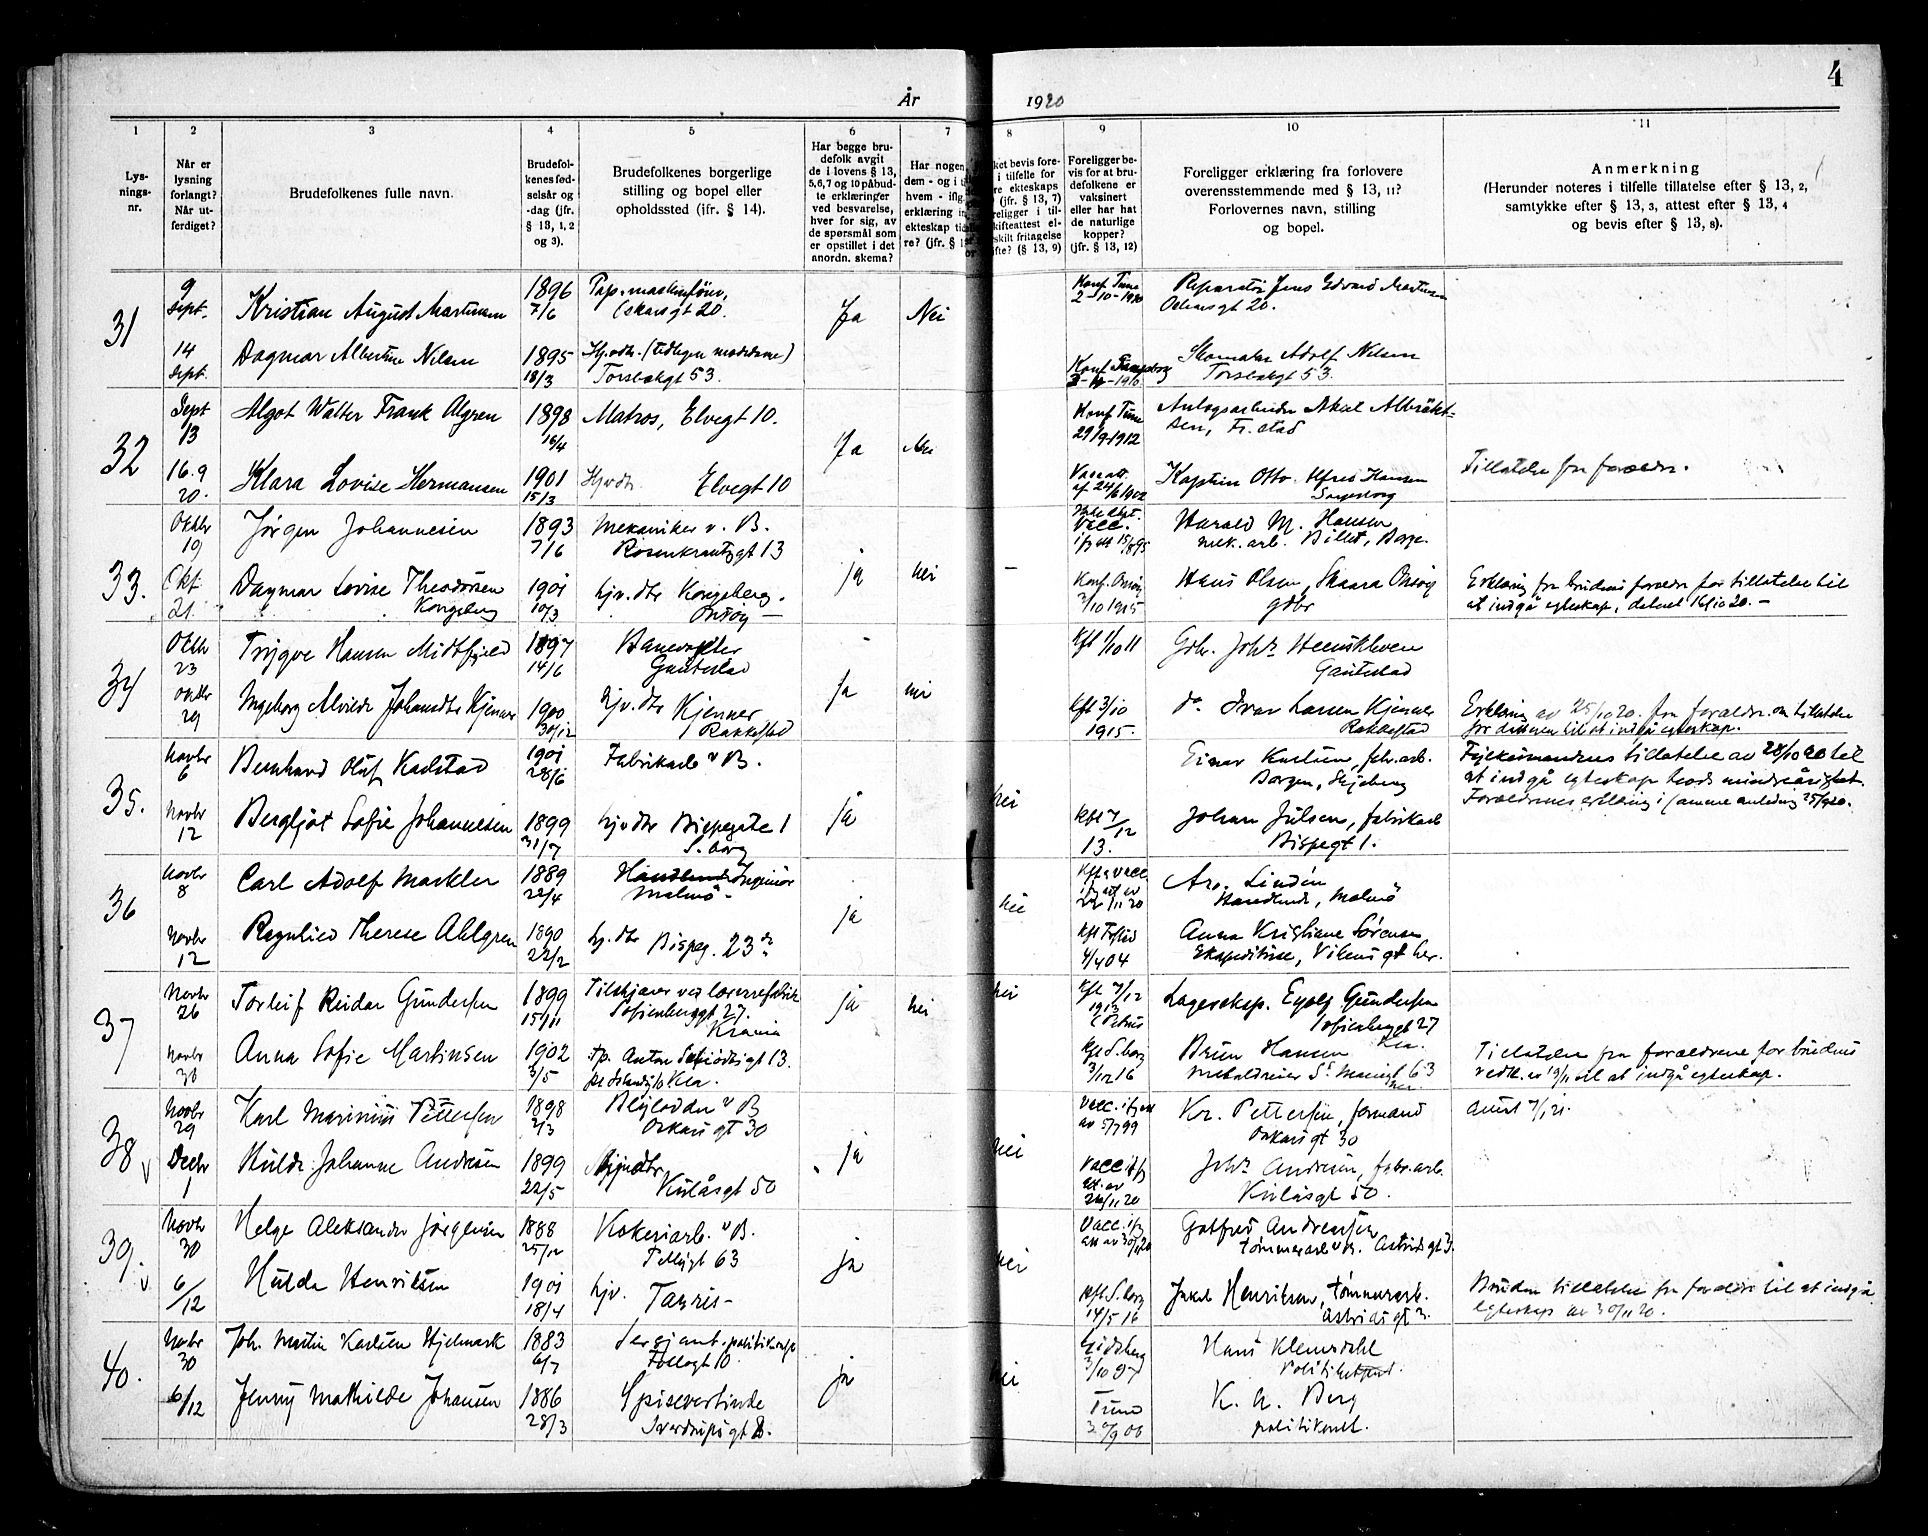 4
År 1920
1 2 3 4 5 6 7 8 9 10 11
Lys-
nings-
nr.
Når er
lysning
forlangt?
Når ut-
ferdiget?
Brudefolkenes fulle navn.
Brudefol-
kenes fød-
selsår og
-dag (jfr.
§ 13, 1, 2
og 3).
Brudefolkenes borgerlige
stilling og bopel eller
opholdssted (jfr. § 14).
Har begge bru-
defolk avgit
de i lovens § 13,
5,6,7 og 10 påbud-
te erklæringer
ved besvarelse,
hver for sig, av
de spørsmål som
er opstillet i det
anordn. skema?
Har nogen
dem - og i
hvem - ifig.
erklæring in
ekteskap
re? (jfr. §
ket bevis fore-
i tilfelle for
re ekteskaps
(jfr. § 13, 7)
religger i til-
skifteattest el-
skilt fritagelse
ifte? (§ 13, 9)
Foreligger be-
vis for at bru-
defolkene er
vaksinert
eller har hat
de naturlige
kopper?
(jfr. § 13, 12)
Foreligger erklæring fra forlovere
overensstemmende med § 13, 11?
Forlovernes navn, stilling
og bopel.
Anmerkning
(Herunder noteres i tilfelle tillatelse efter § 13, 2,
samtykke efter § 13, 3, attest efter § 13, 4
og bevis efter § 13, 8).
31
9 Sept. Kristian August Martinsen 1896 7/6 Pap. maskinfører, Oskarsgt 20. Ja Nei Konf. Tune 2-10-1910 Reparatør Jens Edvard Martinsen
Oskarsgt 20.
14 Sept. Dagmar Albertine Nilsen 1895 18/3 Hj.vdtr. (tidligere
Torsbækgt 53. Konf 1910 Skomaker Adolf Nilsen
Torsbækgt 53.
32
Sept 13 Algot Walter Frank Algren 1898 16/4 Matros, Elvegt 10. Ja Nei Konf Tune 29/9-1912 Anlogsarbeider Albrikt-
sen, Fr.stad
16.9 20. Klara Lovise Hermansen 1901 15/3 Hjvdtr. Elvegt 10 Vacc.att. af 24/6 1902 Kaptein Otto Alfred Hansen
Sarpsborg Tillatelse fra forældre.
33.
Oktbr 19 Jørgen Johannesen 1893 7/6 Mekaniker v. B.
Rosenkrantzgt 13 ja nei - Vacc. ifg att 15/8 95 Harald M. Hansen
mek. arb. Billet, Borge.
Okt 21. Dagmar Lovise Theodorsen
Kongsberg 1901 10/3 hjv.dtr Kongsberg.
Onsøy - Konf. Onsøy 3/10 1915 Hans Olsen, Skaara Onsøy
gdbr Erklæring fra brudens forældre for tillatelse til
at indgå egteskap, datert 16/10 20. -
34
Oktbr 23 Trygve Hansen Midtfjeld 1897 14/6 Banevokter
Gautestad ja nei Kfl 1/10 11 Gdbr. Johs Heenskhven
Gautestad
Oktbr 29 Ingeborg Alvilde Johansdtr Kjenner 1900 30/12 hjv.dtr Kjenner
Rakkestad kfl 3/10 1915. do Ivar Larsen Kjenner
Rakkestad Erklæring av 25/10 20. fra forældre om tillatelse
for datteren til at indgå egteskap.
35.
Novbr 6 Bernhard Oluf Karlstad 1901 28/6 Fabrikarb v B. ja nei Einar Karlsen, fabr.arb.
Borgen, Skjeberg Fylkesmandens tillatelse av 28/10 20 til
at indgå egteskap trods mindreårighet.
Forældrenes erklæring i samme anledning 25/9 20.
Novbr 12 Bergljot Sofie Johannesen 1899 31/7 hjvdtr Bispegate 1
S.borg kfl 7/12 13. Johan Julsen, fabrikarb
Bispegt 1.
36
Novbr 8 Carl Adolf Markler 1889 22/4 Handlende Ingeniør
Malmø - ja nei Kfl & vacc. ifg att av 22/11 20 Arv. Lindén
Handlende, Malmø
Novbr 12 Ragnhild Therese Ahlgren 1890 22/2 hj.dtr Bispeg. 23 kfl Frstad 4/4 04 Anna Kristiane Sørensen
Ekspeditrise, Vikens gt her.
37
Novbr 26 Torleif Reidar Gundersen 1899 15/11
Sofienberggt 27.
Krania ja nei nei Kfl 7/12 1913 Petrus Lagereksp. Eyolf Gundersen
Sofienberggt 27
Kra.
Novbr 30 Anna Sofie Martinsen 1902 3/5 tp. Anton gt 13. kfl S.borg 3/12 16 Brun Hansen
St. 63 Tillatelse fra forældrene for brudens
vedk. av 19/11 til at indgå egteskap.
38
Novbr 29 Karl Marinius Pettersen 1898 2/3 v B
Oskars gt 30 ja nei Vacc. ifg att av 5/7 99 Kr. Pettersen, formand
Oskars gt 30 7/1 21.
Decbr 1 Hulda Johanne Andresen 1899 22/5 Hjvdtr
Kirlåsgt 50 Vacc ifg att. av 26/11 20 Johs Andresen, fabr.arb.
Kirlåsgt 50.
39.
Novbr 30 Helge Aleksander Jørgensen 1888 25/12 Kokeriarb. v B.
63 ja nei Vacc. ifg att av 30/11 20 Gotfred Andreassen
tømmerarb v B. Astrids gt 3.
6/12 Hulda Henriksen 1901 18/4 hjv. Tanris - kfl S.borg 14/5 16 Jakob Henriksen, tømmerarb.
Astrids gt 3. Bruden tillatelse fra forældre til at indgå
egteskap av 30/11 20.
40.
Novbr 30 Joh. Martin Karlsen Hjelmark 1883 6/7 Sergiant - politikonst
Follogt 10. ja nei Eidsberg 3/10 97 Hans Klemsdahl
Politibetjent.
6/12 Jenny Mathilde Johansen 1886 28/3 Spisevertinde
Sverdrups gt 8. Tune 30/9 00 K. A. Berg
politikonst.